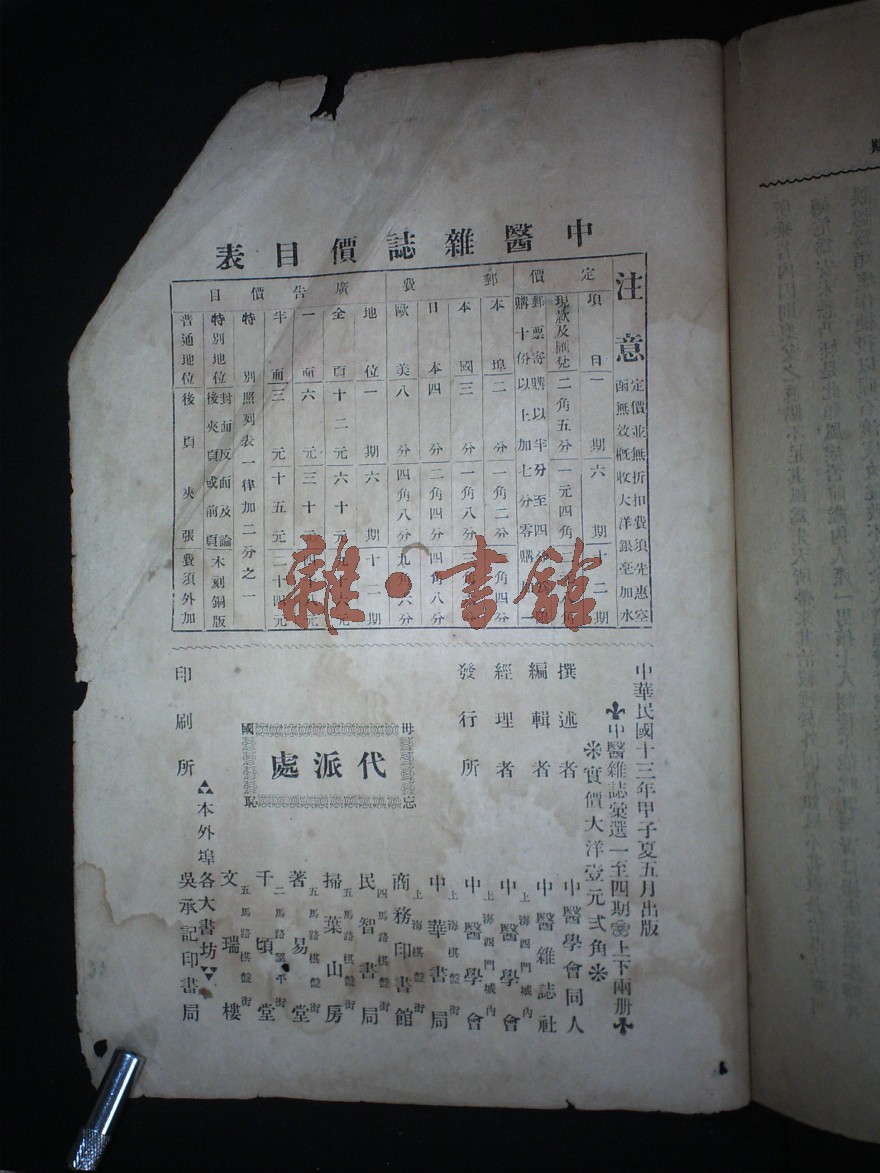 中醫雜誌價目表
注意
定價並無折扣費須先惠空
函無效概收大洋銀毫加水
定價
項目 一期 六期 十二期
現款及匯兌 二角五分 一元四角
郵票寄購以半分至四分
購十份以上加七分零購加一
郵費
本埠 二分 一角二分 二角四分
本國 三分 一角八分 三角
日本 四分 二角四分 四角八分
歐美 八分 四角八分 九角六分
廣告價目
地位 一期 六期 十二期
全頁 十二元 六十元 九十六元
一面 六元 三十元 四十八元
半面 三元 十五元 二十四元
特別 照列表一律加二分之一
特別地位 封面反面及論後夾頁或前頁 木刻銅版
普通地位 後頁夾張 費須外加
中華民國十三年甲子夏五月出版
中醫雜誌彙選一至四期 上下兩册
實價大洋壹元弍角
撰述者 中醫學會同人
編輯者 中醫雜誌社
經理者 上海西門城內 中醫學會
發行所 上海西門城內 中醫學會
毋忘國恥
代派處
上海棋盤街 中華書局
上海棋盤街 商務印書館
四馬路棋盤街 民智書局
五馬路棋盤街 掃葉山房
五馬路棋盤街 著易堂
二馬路望平街 千頃堂
五馬路棋盤街 文瑞樓
本外埠各大書坊
印刷所 吳承記印書局
雜·書館